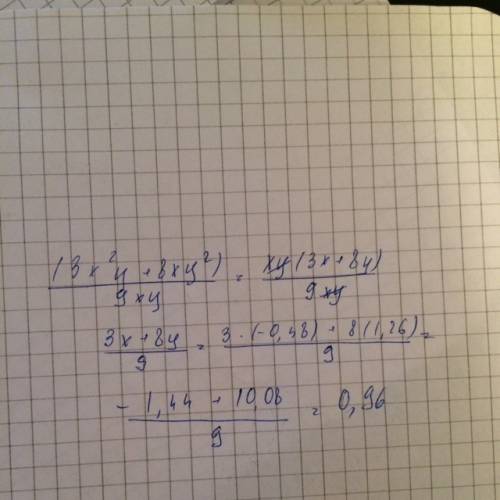 (3x²y + 8xy²) / 9xy = xy(3x + 8y) / 9xy
3x + 8y / 9 = 3·(-0,48) + 8(1,26) / 9 =
-1,44 + 10,08 / 9 = 0,96